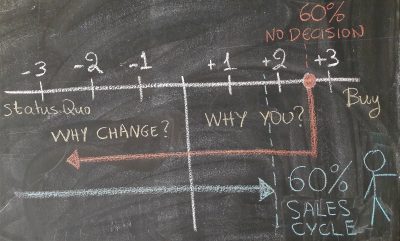 60%
NO DECISION
-3 -2 -1 +1 +2 +3
Status Quo
Buy
WHY CHANGE?
WHY YOU?
60%
SALES
CYCLE